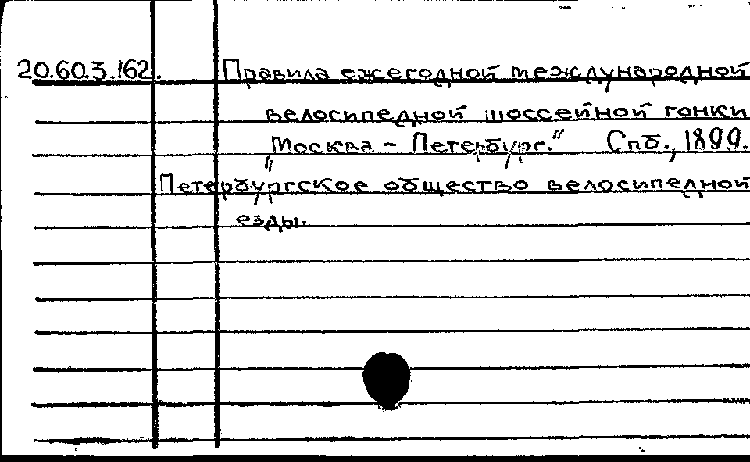 20.60.3.162. Правила ежегодной международной
велосипедной шоссейной гонки
„Москва – Петербург." Спб., 1899.
Петербургское общество велосипедной
езды.